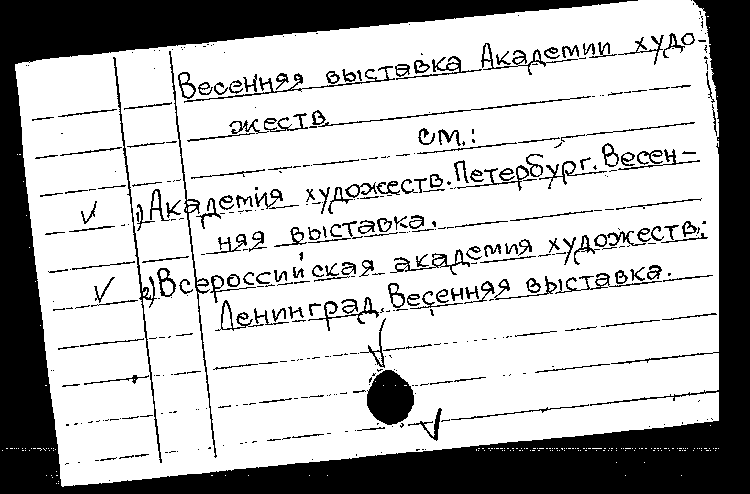 Весенняя выставка Академии худо-
жеств
см.:
1) Академия художеств. Петербург. Весен-
няя выставка.
2) Всероссийская академия художеств.
Ленинград. Весенняя выставка.